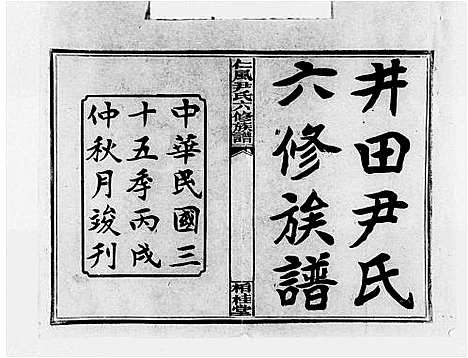 井田尹氏
六修族譜
仁風尹氏六修族譜
相桂堂
中華民國三
十五季丙戌
仲秋月竣刊